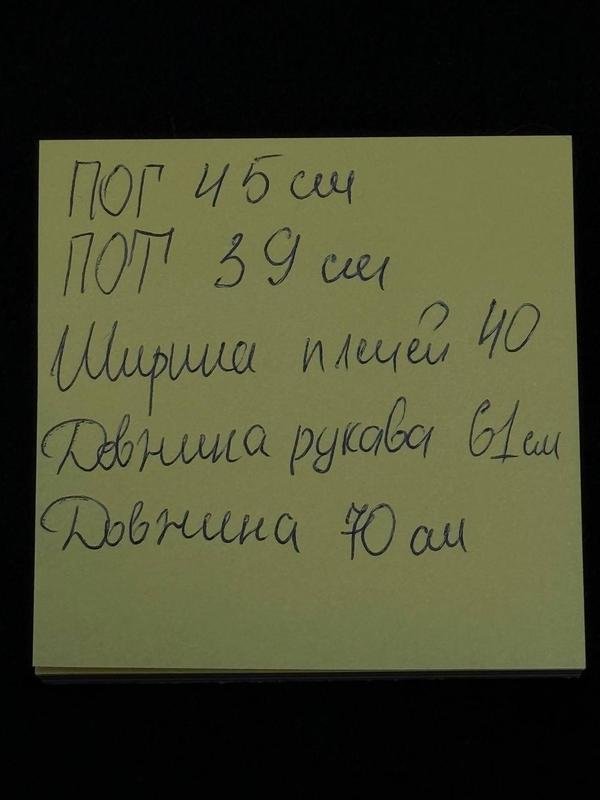 ПОГ 45 см
ПОТ 39 см
Ширина плечей 40
Довжина рукава 61 см
Довжина 70 см